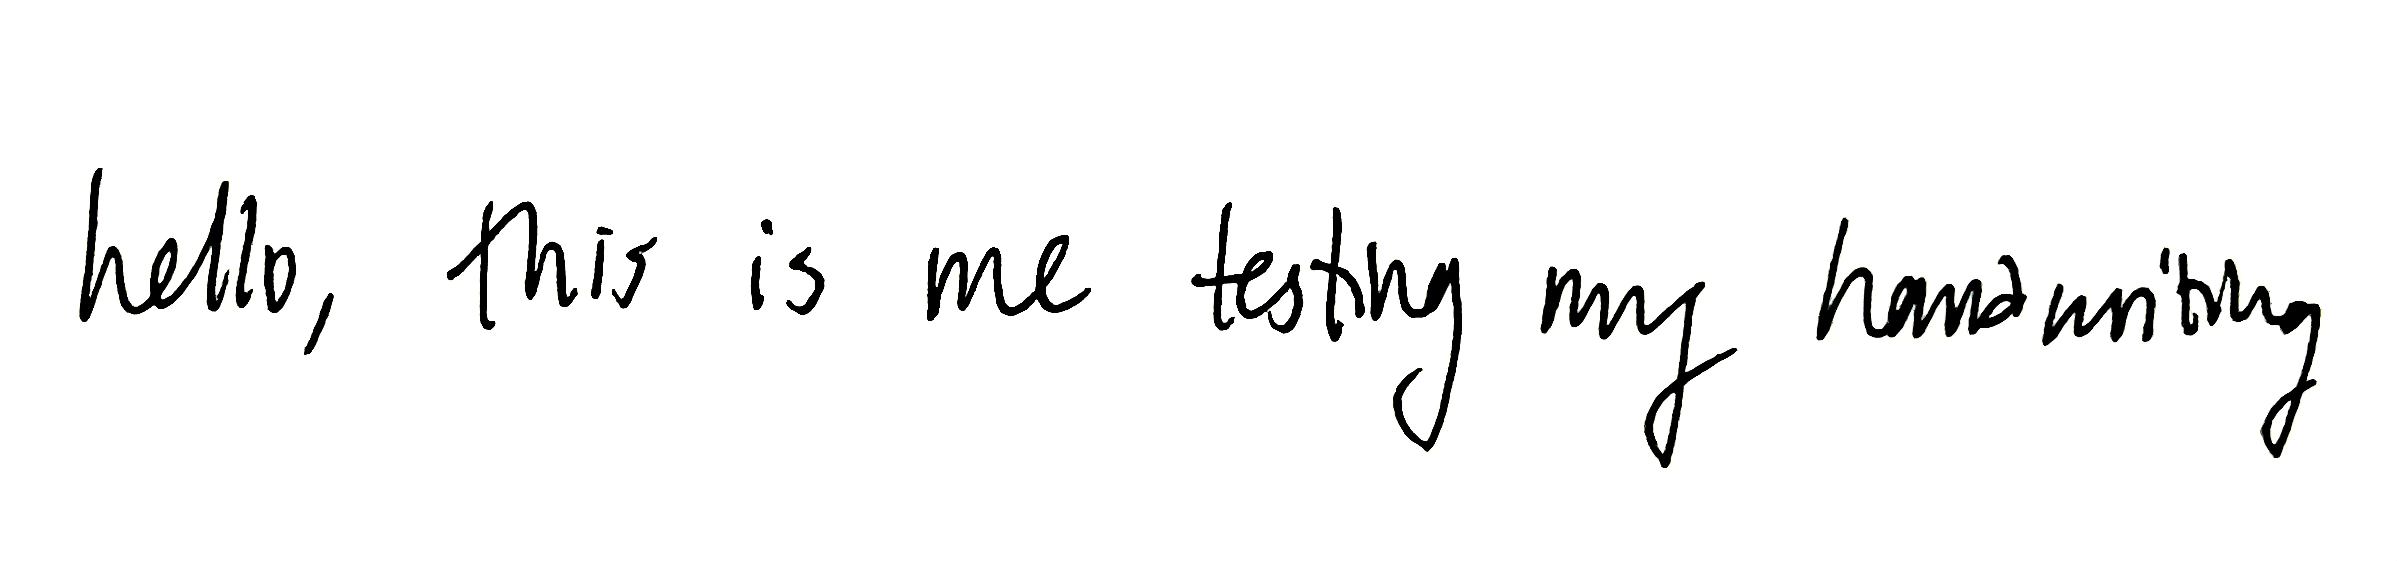 hello, this is me testing my handwriting